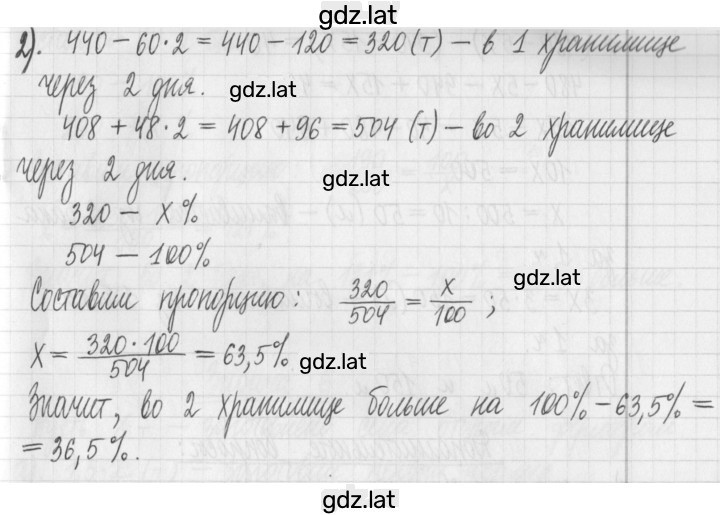 gdz.lat
2). 440 - 60·2 = 440 - 120 = 320 (т) - в 1 хранилище
через 2 дня. gdz.lat
408 + 48·2 = 408 + 96 = 504 (т) - во 2 хранилище
через 2 дня. gdz.lat
320 - x %
504 - 100%
Составим пропорцию: 320/504 = x/100 ; gdz.lat
x = 320·100/504 = 63,5% gdz.lat
Значит, во 2 хранилище больше на 100% - 63,5% =
= 36,5%.
gdz.lat